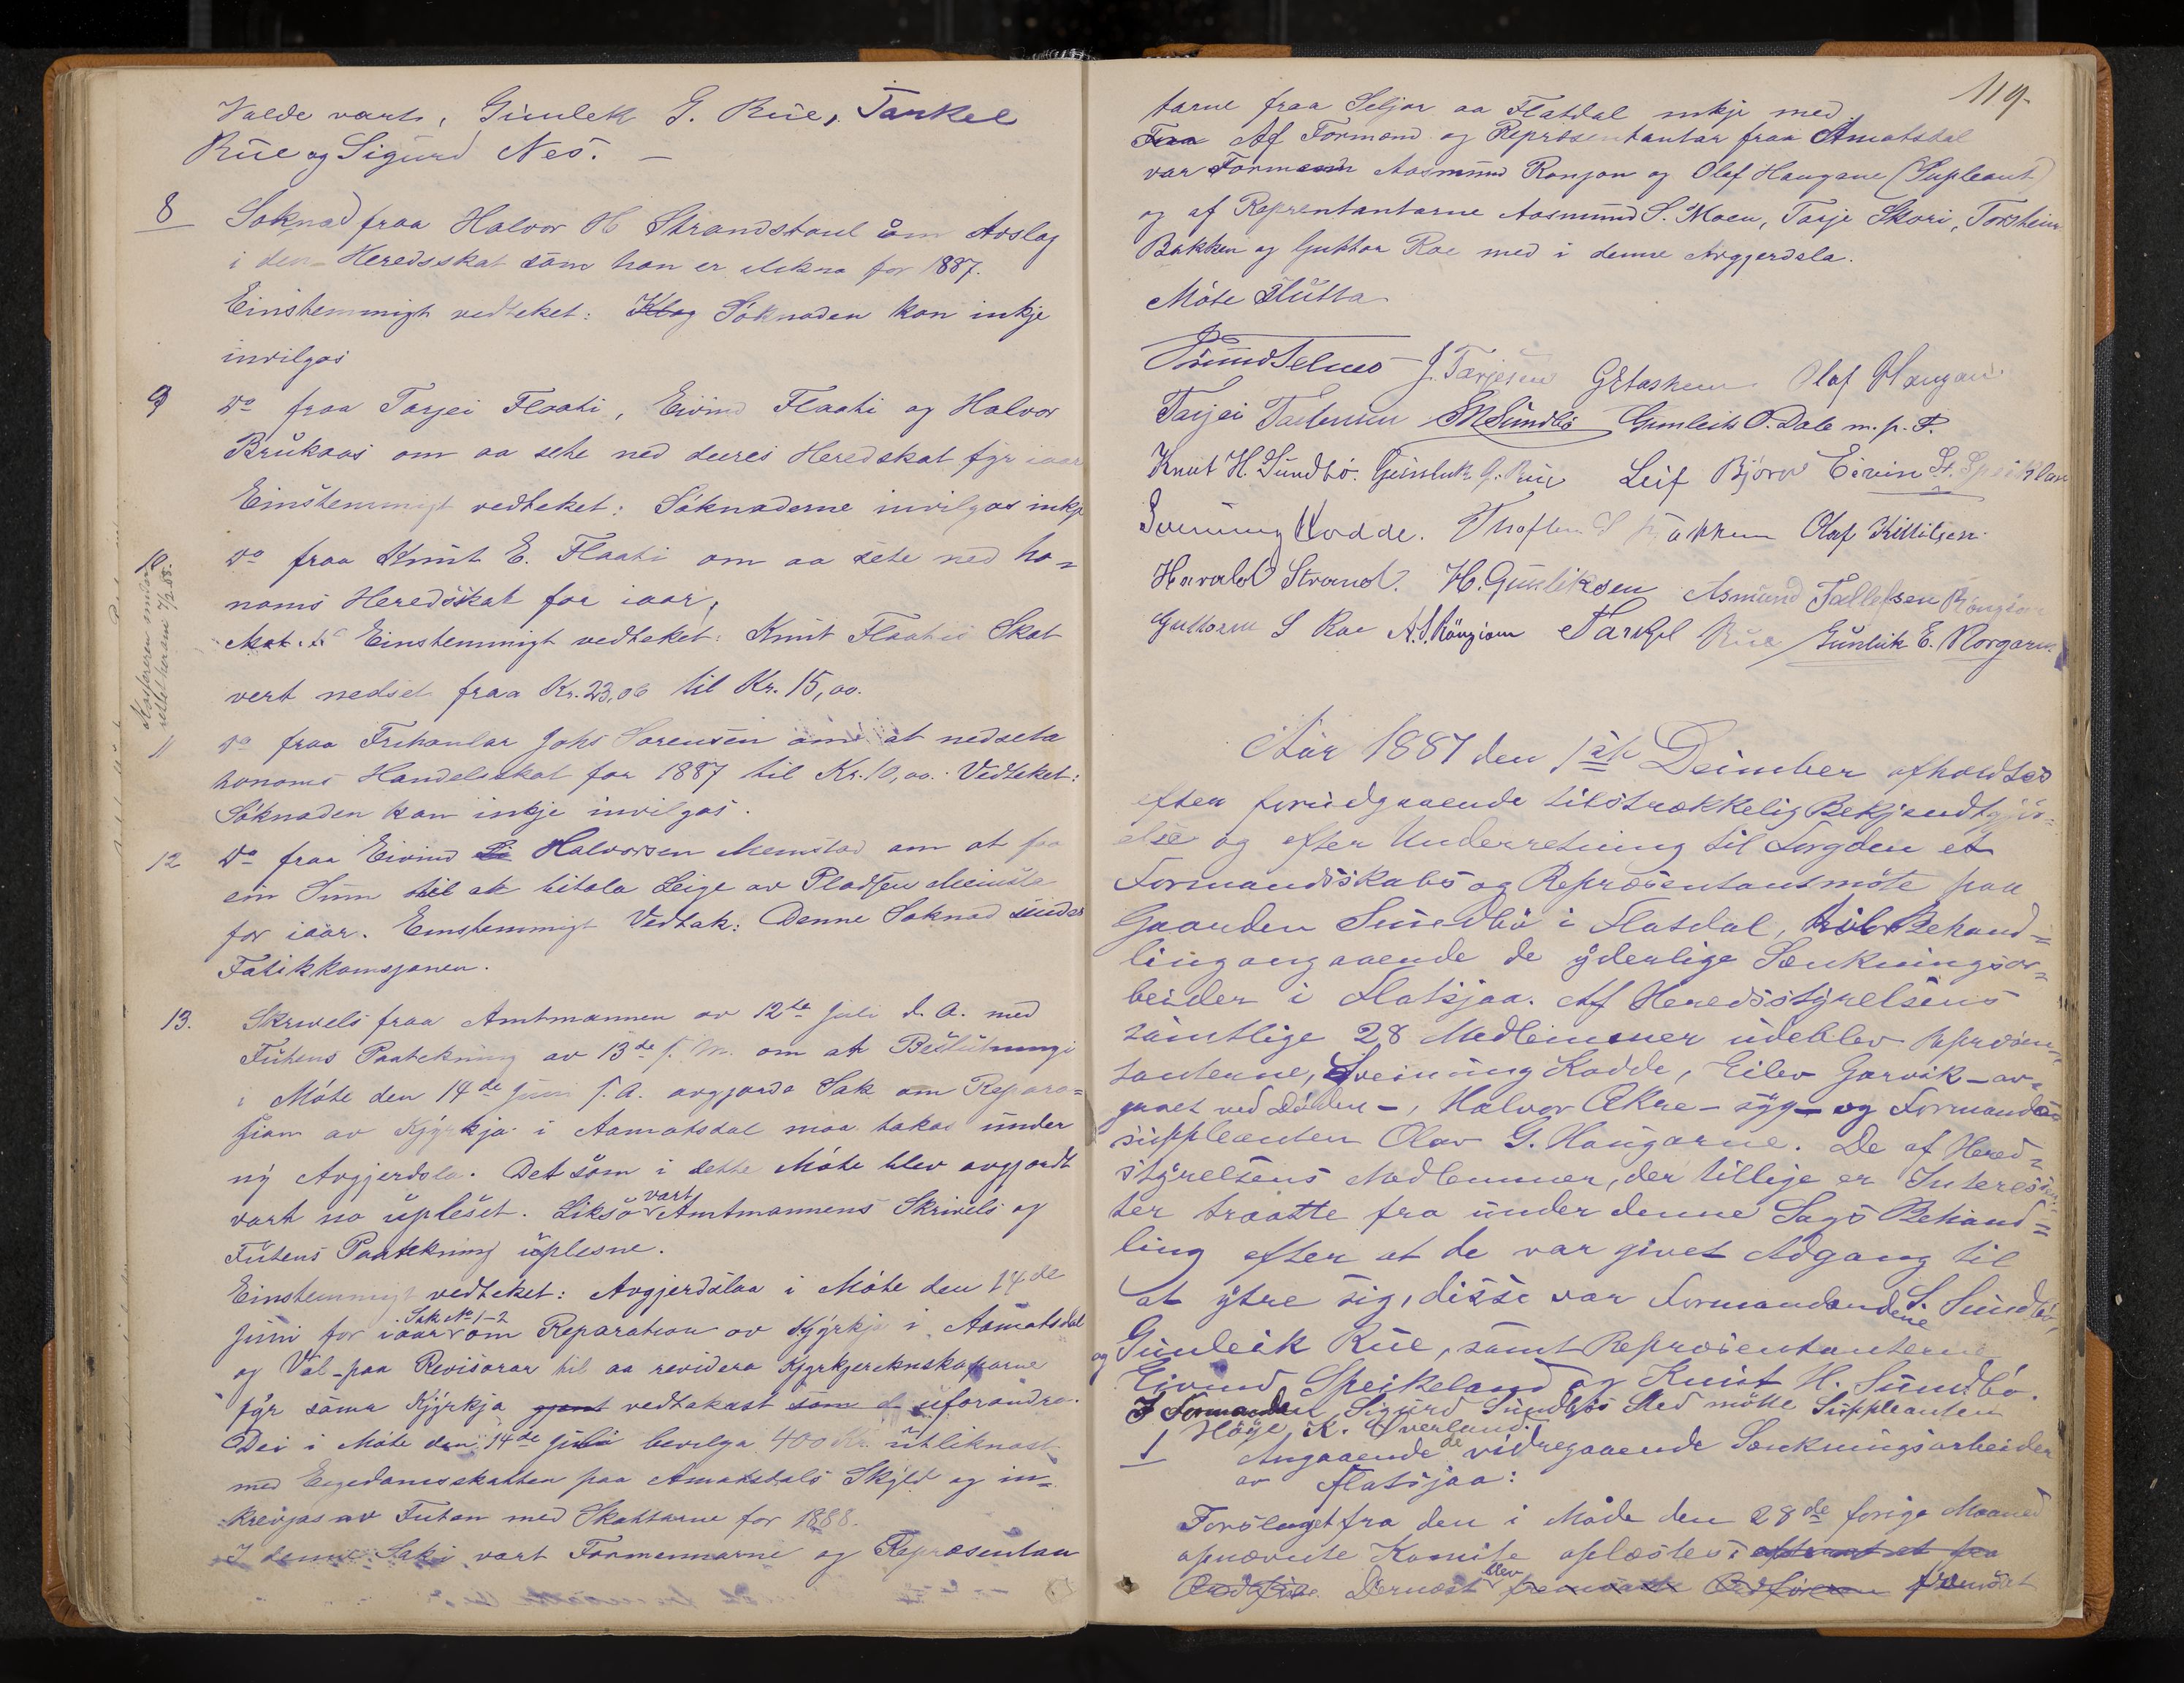 Valde vart, Gunlek G. Rue, Tarkel
Rue og Sigurd Nes. —
8 Soknad fraa Halvor H Strandstaul om Avslag
i den Heredsskat som han er likna for 1887.
Einstemmigt vedteket: Klag Söknaden kan inkje
invilgas
9 Do fraa Tarjei Flaati, Eivind Flaati og Halvor
Brukaas om aa sete ned deires Heredskat fyr iaar
Einstemmigt vedteket: Söknaderne invilgas inkje
10 Do fraa Knut E. Flaati om aa sete ned ho-
noms Heredsskat for iaar,
Einstemmigt vedteket: Knut Flaatis Skat
vert nedset fraa Kr. 23,06 til Kr. 15,00.
11 Do fraa Frihanlar Johs Sorensen om at nedseta
honoms Handelsskat for 1887 til Kr. 10,00. Vedteket:
Söknaden kan inkje invilgas.
12 Do fraa Eivind Li Halvorsen Meinstad om at faa
ein Sum til at bitala Leige av Pladsen Meinsta
for iaar. Einstemmigt Vedtak: Denne Soknad sendes
Fatikkomsjonen.
13. Skrivels fraa Amtmannen av 12te Juli d. A. med
Futens Paatekning av 13de s. M. om at Beslutningi
i Móte den 14de Juni s. A. avgjorda Sak om Repara=
sjon av Kjyrkja i Aamotsdal maa takas under
ny Avgjerdsla. Det som i dette Móte blev avgjordt
vart no upleset. Likso vart Amtmannens Skrivels og
Futens Paatekning uplesne.
Einstemmigt vedteket: Avgjerdslaa i Móte den 14de
Juni for iaar Sak No 1-2 om Reparation av Kjyrkja i Aamotsdal
og Val paa Revisorar til aa revidera Kjyrkjereknskaparne
fyr sama Kjyrkja gjent vedtakast som d uforandra.
Dei i Móte den 14de Juli bevilga 400 Kr. utliknast
med Eigedomsskatten paa Amotsdals Skyld og in=
krevjas av Futen med Skattarne for 1888.
I denne Sak i vart Formennarne og Repræsentan
119.
tarne fraa Seljor aa Flatdal inkje med
Fraa Af Formend og Repræsentantar fraa Amotsdal
var Formenn Aasmund Ronjon og Olaf Haugane (Supleant)
og af Reprentantarne Aasmund S. Moen, Tarje Skori, Torstein
Bakken og Guttor Roe med i denne Avgjerdsla.
Móte Slutta
J. Tarjesen Olaf Haugan
Tarjei Taltensen SNSundbö Gunleik O. Dale m. p. P.
Knut H. Sundbó. Gunleik G. Rue Leif Björn Eivin St. Speikelan
Sveinung Kodde. Olaf Kittilsen.
Harald Strand. H. Gunliksen Asmund Tallefsen Röngion
Guttorm S Roe A.S. Röngion Tarkjel Rue Gunleik E. Norgarn.
Aar 1887 den 1ste Desimber afholdtes
efter forudgaaende tilstrækkelig Bekjendtgjör-
else og efter Underretning til Fogden et
Formandsskabs og Repræsentantmöte paa
Gaarden Sundbö i Flatdal, til Behand=
ling angaaende de yderlige Sænkningsar=
beider i Flatsjaa. Af Heredsstyrelsens
samtlige 28 Medlemmer udeblev Repræsen=
tanterne, Sveinung Kodde, Eilev Garvik - av-
gaaet ved Döden -, Halvor Økne - syg - og Formands
suppleanten Olav G. Haugarne. De af Hered=
styrelsens Medlemmer, der tillige er Interessen-
ter traatte fra under denne Sags Behand=
ling efter at de var givet Adgang til
at ytre sig, disse var Formændene S. Sundbö,
og Gunleik Rue, samt Repræsentanterne
Eivind Speikeland og Knut H. Sundbö.
I Formanden Sigurd Sundbös Sted mötte Suppleanten
Höye K. Överland.
1 Angaaende de vidregaaende Sænkningsarbeider
av Flatsjaa:
Forslaget fra den i Möde den 28de forige Maaned
opnævnte Komite oplæstes:
Dernæst blev fremsat